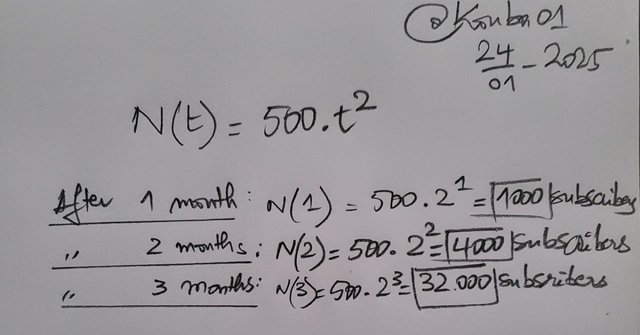 @Kouba01
24/01 - 2025
N(t) = 500.t²
After 1 month: N(1) = 500.2¹ = 1000 subscribers
" 2 months: N(2) = 500.2² = 4000 subscribers
" 3 months: N(3) = 500.2³ = 32.000 subsribers